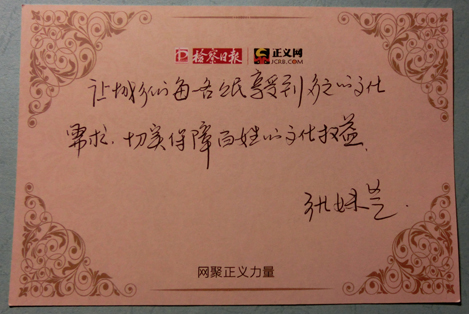 检察日报 正义网
JCRB.COM
让城乡的每名公民享受到多元的文化
需求,切实保障百姓的文化权益。
张妹芝.
网聚正义力量